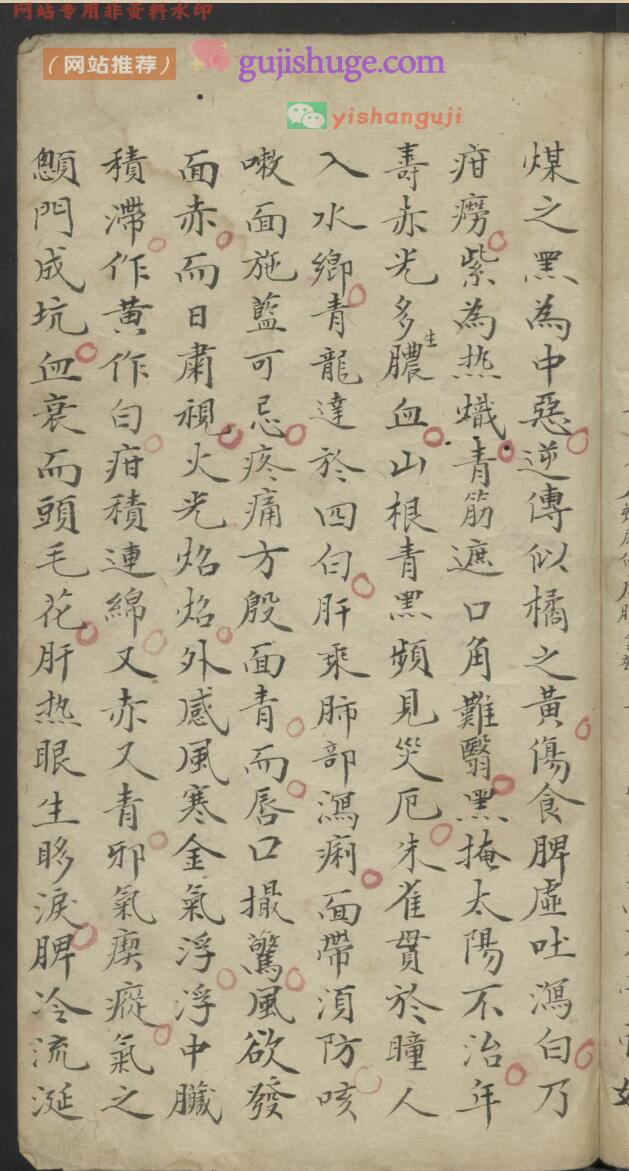 网站专用非资料水印
（网站推荐）
gujishuge.com
yishanguji
煤之黑為中惡逆傳似橘之黃傷食脾虛吐瀉白乃
疳癆紫為热熾青筋遮口角難醫黑掩太陽不治年
壽赤光多生膿血山根青黑頻見災厄朱雀貫於瞳人
入水鄉青龍達於四白肝乘肺部瀉痢面帶須防咳
嗽面施藍可忌疼痛方殷面青而唇口撮驚風欲發
面赤而日肅視火光焰焰外感風寒金氣浮浮中臟
積滯作黃作白疳積連綿又赤又青邪氣瘈瘲氣之
顖門成坑血衰而頭毛花肝热眼生眵淚脾冷流涎